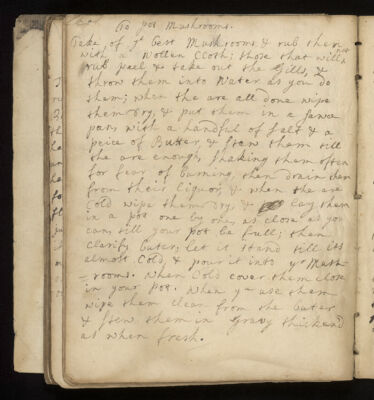 To pot Mushrooms.
Take of ye best Mushrooms & rub them
with a wollen Cloth; those that will not
rub, peel & take out the Gills, &
throw them into Water as you do
them; when the are all done wipe
them dry, & put them in a sawce
pan with a handful of salt & a
peice of Butter, & stew them till
the are enough, shaking them often
for fear of burning, then drain them
from their Liquor, & when the are
Cold wipe them dry, & lay them
in a pot one by one as close as you
can, till your pot be full; then
Clarify buter, let it stand till its
almost Cold, & pour it into ye Mush-
-rooms. When Cold cover them close
in your pot. When you use them
wipe them clean from the buter
& stew them in Gravy thickend
as when fresh.